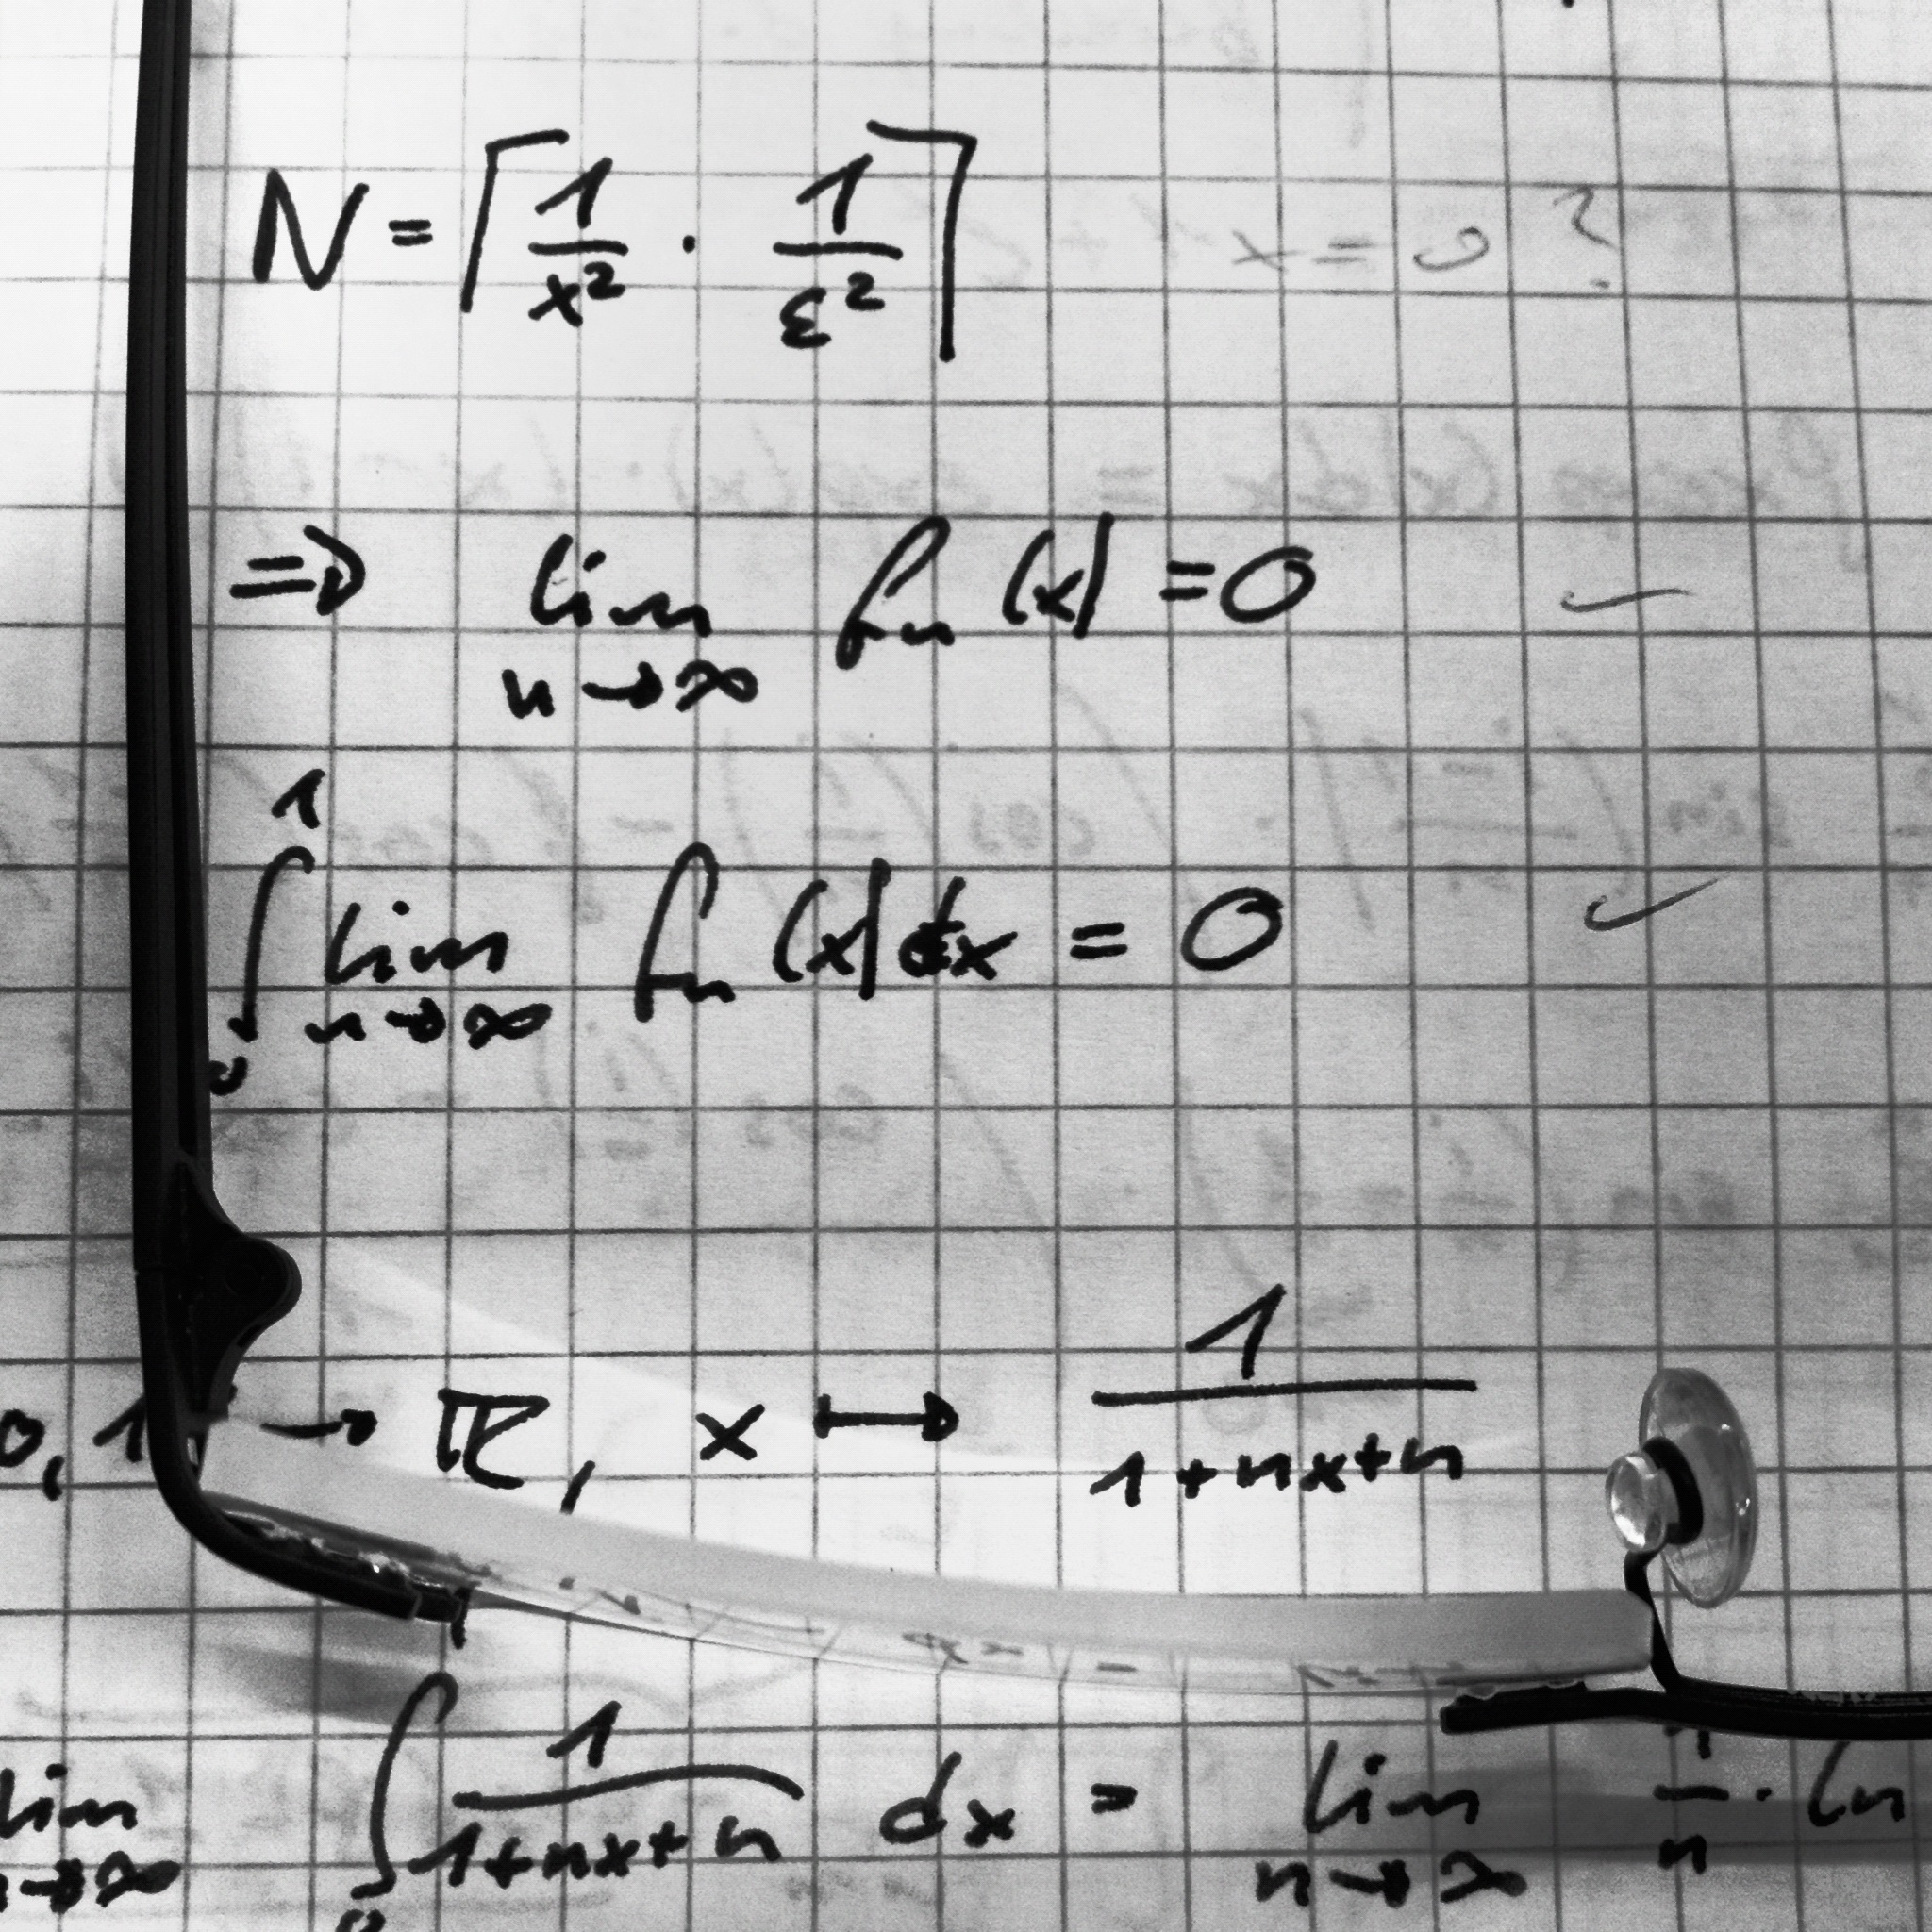 N = ⌈1/x² · 1/ε²⌉
⇒ lim n→∞ fn(x) = 0 ✓
∫₀¹ lim n→∞ fn(x) dx = 0 ✓
0, 1 → ℝ, x ↦ 1/(1+nx+n)
lim n→∞ ∫₀¹ 1/(1+nx+n) dx = lim n→∞ 1/n · ln